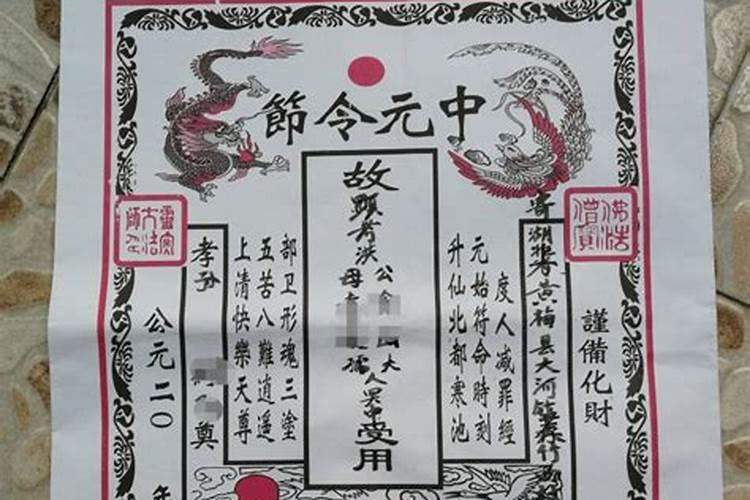 中元令節
佛法僧寶
謹備化財
寄湖北黄梅县大河镇
度人减罪經
元始符命時刻
升仙北都寒池
故顯考洪公
母孺大人冥中受用
部卫形魂三塗
五苦八難逍遥
上清快樂天尊
孝孙
奠
公元二〇 年